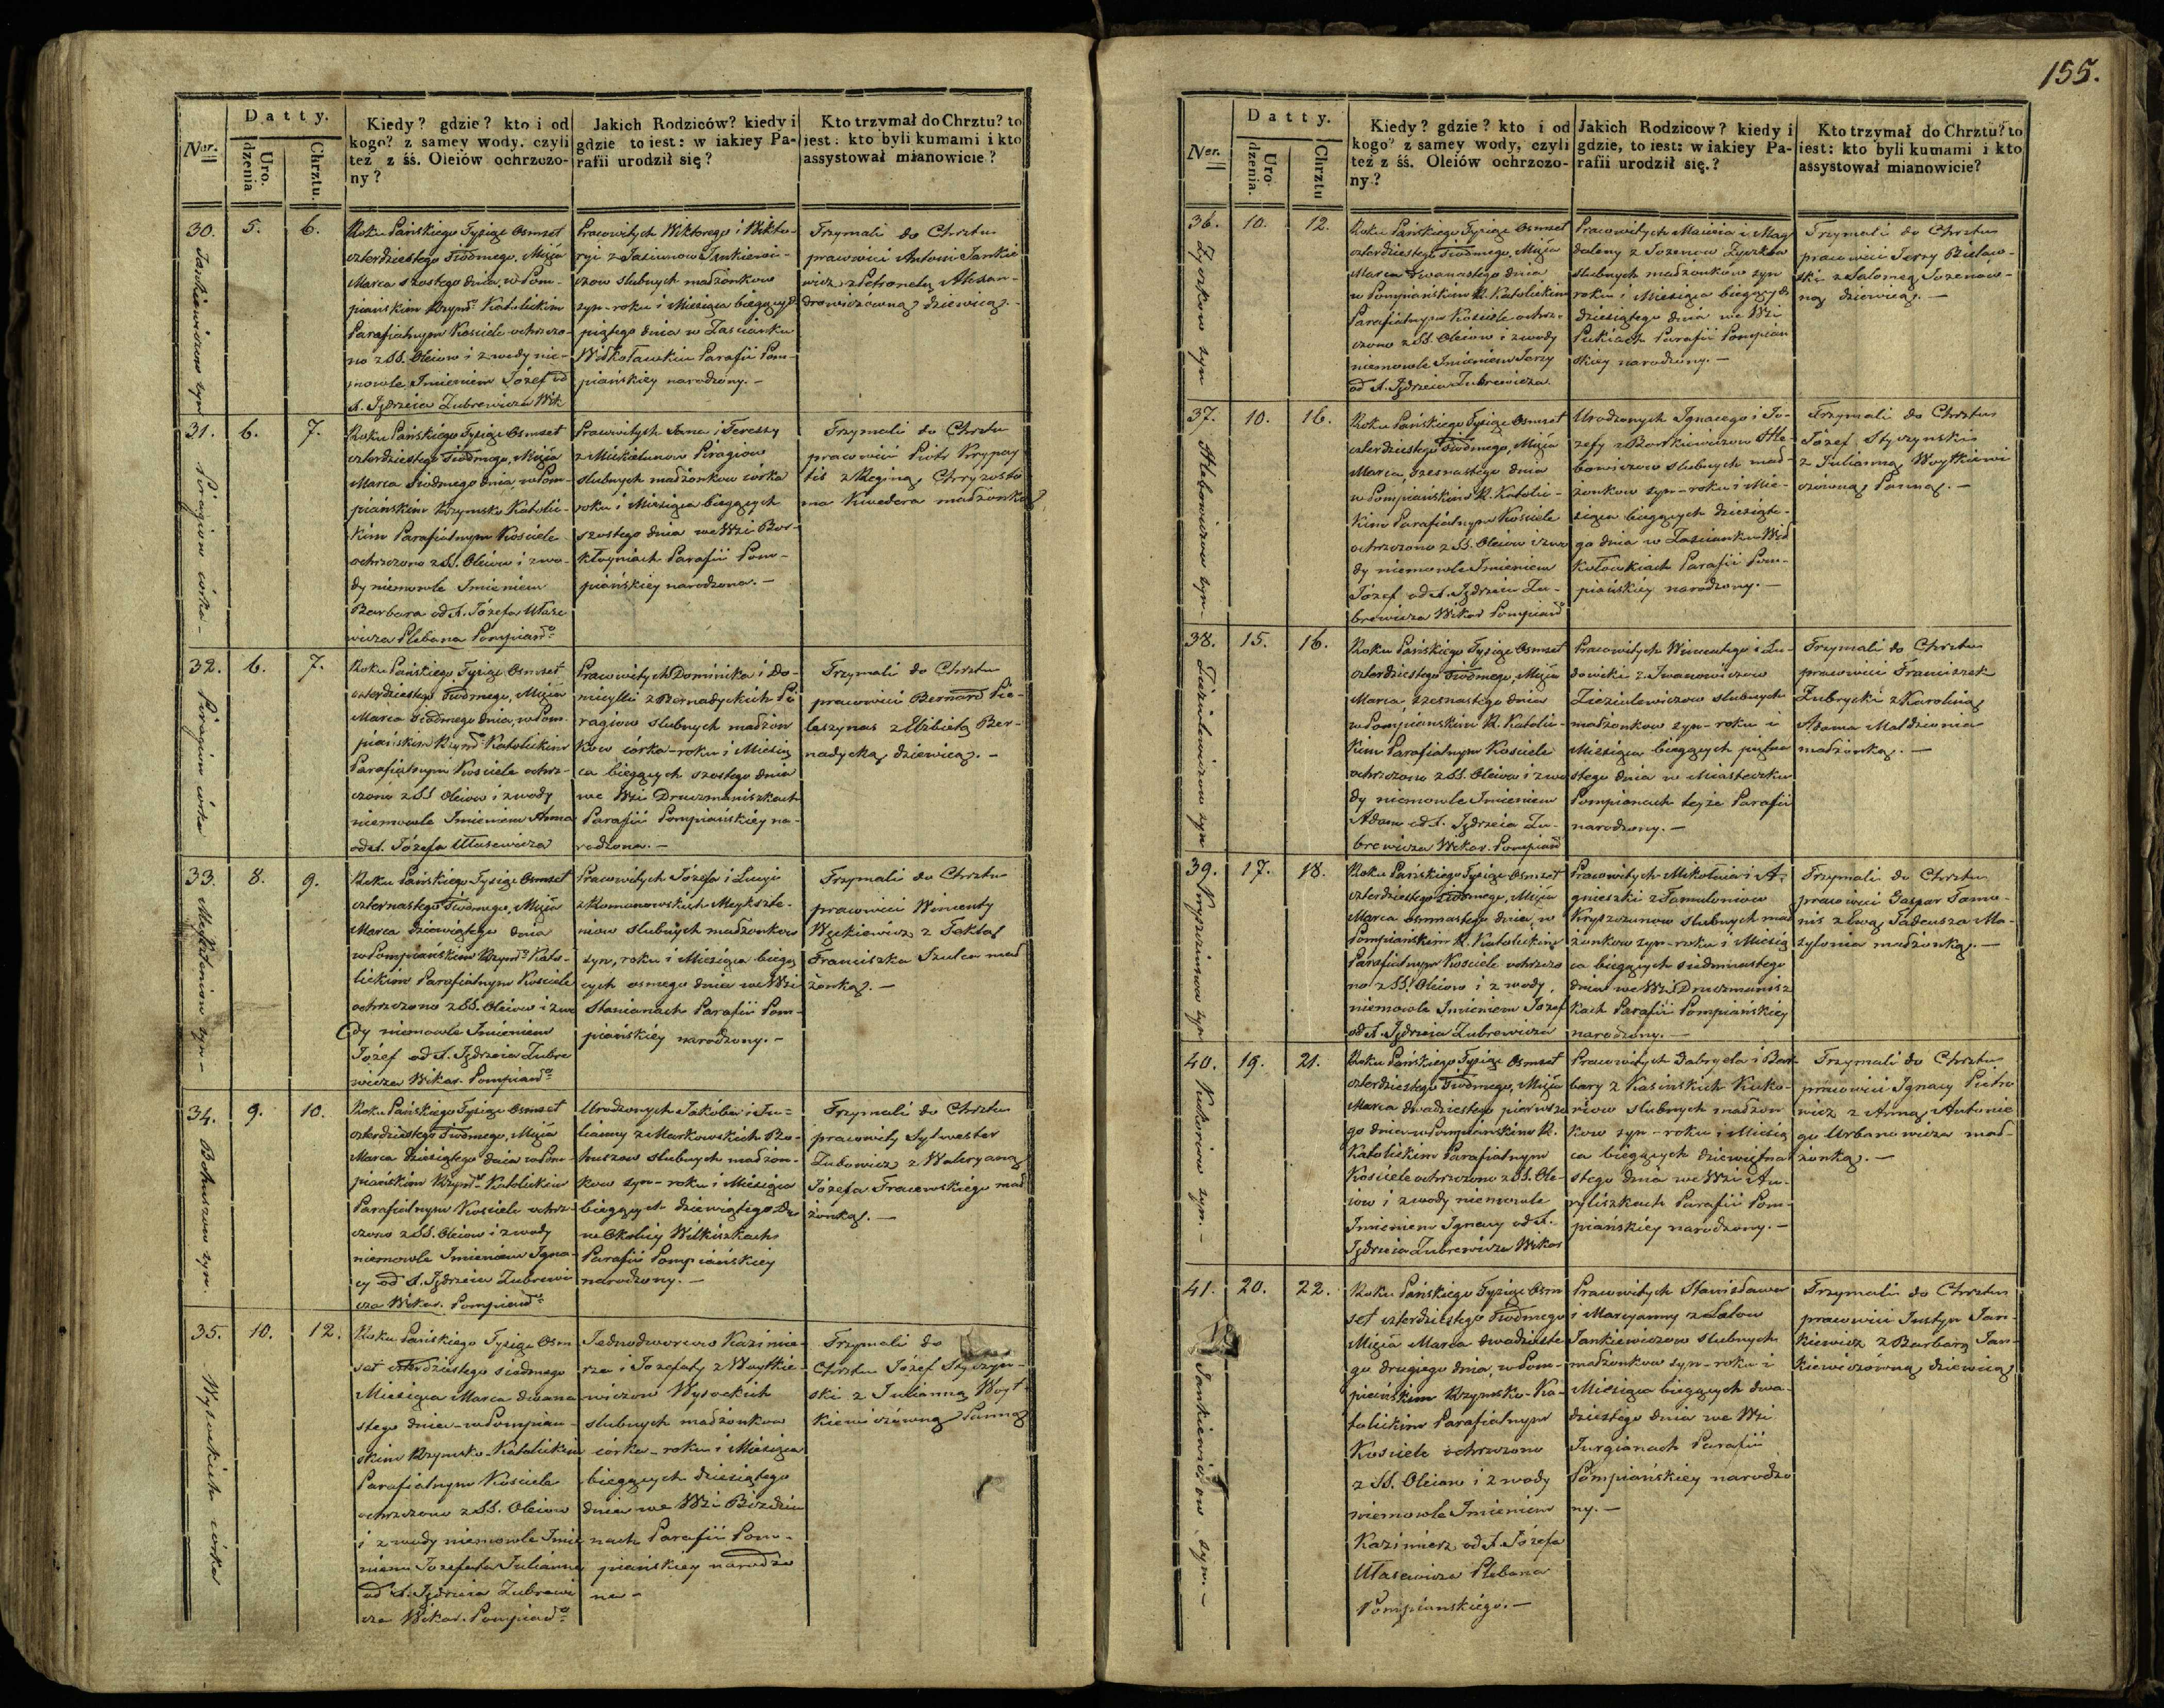 155.
Datty.
Ner.
Uro-
dzenia
Chrztu.
Kiedy? gdzie? kto i od
kogo? z samey wody, czyli
też z śś. Oleiów ochrzczo-
ny?
Jakich Rodziców? kiedy i
gdzie to iest: w iakiey Pa-
rafii urodził się?
Kto trzymał do Chrztu? to
iest: kto byli kumami i kto
assystował mianowicie?
30.
5.
6.
Jankiewiczow syn
Roku Pańskiego Tysiąc Osmset
czterdziestego siodmego, Msca
Marca szostego dnia, w Pom-
piańskim Rzym. Katolickim
Parafialnym Kosciele ochrzczo-
no z SS. Oleiow i z wody nie-
mowle Imieniem Józef od
X. Jędrzeia Zubrewicza Wik
Pracowitych Wiktorego i Wikto-
ryi z Jasiunow Jankiewi-
czow slubnych małżonkow
syn - roku i Miesiąca bieżących
piątego dnia w Zascianku
Parafii Pom-
piańskiey narodzony. -
Trzymali do Chrztu
pracowici Antoni Jankie
wicz z Petronelą Alexan-
drowiczowną dziewicą. -
31.
6.
7.
Piragiow córka -
Roku Pańskiego Tysiąc Osmset
czterdziestego siodmego, Msca
Marca siodmego dnia, w Pom-
piańskim Rzymsko Katolic-
kim Parafialnym Kościele
ochrzczono z SS. Oleiow i z wo-
dy niemowle Imieniem
Barbara od X. Józefa Ułase
wicza Plebana Pompian
Pracowitych Jana i Teressy
z Mickałunow Piragiow
slubnych małżonkow córka
roku i Miesiąca bieżących
szostego dnia we Wsi Bor-
kłoyniach Parafii Pom-
piańskiey narodzona. -
Trzymali do Chrztu
pracowici Piotr Krypay
tis z Reginą Chryzosto
ma Kwedera małżonką
32.
6.
7.
Piragiow córka
Roku Pańskiego Tysiąc Osmset
czterdziestego siodmego, Msca
Marca siodmego dnia, w Pom-
piańskim Rzym. Katolickim
Parafialnym Kosciele ochrz-
czono z SS Oleiow i z wody
niemowle Imieniem Anna
od X. Józefa Ułasewicza
Pracowitych Dominika i Do-
micylli z Bernadyckich Pi
ragiow slubnych małżon
kow córka - roku i Miesią
ca bieżących szostego dnia
we Wsi Druzmaniszkach
Parafii Pompiańskiey na-
rodzona. -
Trzymali do Chrztu
pracowici Bernard Pie-
laszynas z Elżbietą Ber-
nadycką dziewicą. -
33.
8.
9.
Meykszteniow syn -
Roku Pańskiego Tysiąc Osmset
czternastego siodmego, Msca
Marca dziewiątego dnia
w Pompiańskim Rzym. Kato-
lickim Parafialnym Kosciele
ochrzczono z SS. Oleiow i z wo
dy niemowle Imieniem
Józef od X. Jędrzeia Zubre
wicza Wikar. Pompian
Pracowitych Józefa i Lucyi
z Romanowskich Meykszte-
niow slubnych małżonkow
syn, roku i Miesiąca bieżą
cych osmego dnia we Wsi
Stanianach Parafii Pom-
piańskiey narodzony. -
Trzymali do Chrztu
pracowici Wincenty
Węckiewicz z Teklą
Franciszka Szulca mał
żonką. -
34.
9.
10.
Bohuszow syn.
Roku Pańskiego Tysiąc Osmset
czterdziestego siodmego, Msca
Marca dziesiątego dnia w Pom-
piańskim Rzym. Katolickim
Parafialnym Kosciele ochrz-
czono z SS. Oleiow i z wody
niemowle Imieniem Igna-
cy od X. Jędrzeia Zubrewi
cza Wikar. Pompian
Urodzonych Jakóba i Ju-
lianny z Markowskich Bo-
huszow slubnych małżon-
kow syn - roku i Miesiąca
bieżących dziewiątego Dn
w Okolicy Wilkiszkach
Parafii Pompiańskiey
narodzony. -
Trzymali do Chrztu
pracowity Sylwester
Zubowicz z Waleryaną
Józefa Tracewskiego mał
żonką. -
35.
10.
12.
Wysockich córka
Roku Pańskiego Tysiąc Osm
set czterdziestego siodmego
Miesiąca Marca dwuna
stego dnia - w Pompian-
skim Rzymsko-Katolickim
Parafialnym Kosciele
ochrzczono z SS. Oleiow
i z wody niemowle Imie
niem Jozefata Julianna
od X. Jędrzeia Zubrewi
cza Wikar. Pompian
Jednodworcow Kazimie-
rza i Jozefaty z Woytkie-
wiczow Wysockich
slubnych małżonkow
córka - roku i Miesiąca
bieżących dziesiątego
dnia we Wsi Birżdzia
nach Parafii Pom-
piańskiey narodzo
na -
Trzymali do
Chrztu Józef Styczyn-
ski z Julianną Woyt-
kiewiczówną Panną
Datty.
Ner.
Uro-
dzenia.
Chrztu
Kiedy? gdzie? kto i od
kogo? z samey wody, czyli
też z śś. Oleiów ochrzczo-
ny?
Jakich Rodzicow? kiedy i
gdzie, to iest: w iakiey Pa-
rafii urodził się.?
Kto trzymał do Chrztu? to
iest: kto byli kumami i kto
assystował mianowicie?
36.
10.
12.
Zyczkow syn
Roku Pańskiego Tysiąc Osmset
czterdziestego siodmego, Msca
Marca dwanastego dnia
w Pompiańskim R. Katolickim
Parafialnym Kosciele ochrz-
czono z SS. Oleiow i z wody
niemowle Imieniem Jerzy
od X. Jędrzeia Zubrewicza
Pracowitych Macieia i Mag
daleny z Jozenow Zyczkow
slubnych małżonkow syn
roku i Miesiąca bieżących
dziesiątego dnia we Wsi
Pukiszach Parafii Pompian
skiey narodzony. -
Trzymali do Chrztu
pracowici Jerzy Bielaw-
ski z Salomeą Jozenow-
ną dziewicą. -
37.
10.
16.
Hlebowiczow syn -
Roku Pańskiego Tysiąc Osmset
czterdziestego siodmego, Msca
Marca, szesnastego dnia
w Pompiańskim R. Katolic-
kim Parafialnym Kosciele
ochrzczono z SS. Oleiow i z wo
dy niemowle Imieniem
Józef od X. Jędrzeia Zu-
brewicza Wikar Pompian
Urodzonych Ignacego i Jo-
zefy z Bortkiewiczow Hle-
bowiczow slubnych mał-
żonkow syn - roku i Mie-
siąca bieżących dziesiąte-
go dnia w Zascianku Wid
Parafii Pom-
piańskiey narodzony. -
Trzymali do Chrztu
Józef Styczynski
z Julianną Woytkiewi
czówną Panną. -
38.
15.
16.
Ziezialewiczow syn
Roku Pańskiego Tysiąc Osmset
czterdziestego siodmego, Msca
Marca szesnastego dnia
w Pompianskim R. Katolic-
kim Parafialnym Kosciele
ochrzczono z SS. Oleiow i z wo
dy niemowle Imieniem
Adam od X. Jędrzeia Zu-
brewicza Wikar. Pompian
Pracowitych Wincentego i Lu-
dowiki z Iwanowiczow
Ziezialewiczow slubnych
małżonkow syn - roku i
Miesiąca bieżących piętna
stego dnia w Miasteczku
Pompianach teyże Parafii
narodzony. -
Trzymali do Chrztu
pracowici Franciszek
Zubrycki z Karoliną
Adama Małdzionia
małżonką. -
39.
17.
18.
Kryszciunow syn
Roku Pańskiego Tysiąc Osmset
czterdziestego siodmego, Msca
Marca osmnastego dnia, w
Pompiańskim R. Katolickim
Parafialnym Kosciele ochrzczo
no z SS. Oleiow i z wody,
niemowle Imieniem Jozef
od X. Jędrzeia Zubrewicza
Pracowitych Mikołaia i A-
gnieszki z Tamuloniow
Kryszczunow slubnych mał
żonkow syn - roku i Miesią
ca bieżących siedmnastego
dnia we Wsi Druzmanisz
kach Parafii Pompiańskiey
narodzony. -
Trzymali do Chrztu
pracowici Gaspar Tamo-
nis z Ewą Tadeusza Ma-
zylonia małżonką. -
40.
19.
21.
Kukoriow syn. -
Roku Pańskiego Tysiąc Osmset
czterdziestego siodmego, Msca
Marca dwadziestego pierwsze
go dnia w Pompiańskim R.
Katolickim Parafialnym
Kościele ochrzczono z SS. Ole-
iow i z wody niemowle
Imieniem Ignacy od X.
Jędrzeia Zubrewicza Wikar
Pracowitych Gabryela i Bar
bary z Kasinskich Kuko-
riow slubnych małżon
kow syn - roku i Miesią
ca bieżących dziewiętna
stego dnia we Wsi Au-
ryliszkach Parafii Pom-
piańskiey narodzony. -
Trzymali do Chrztu
pracowici Ignacy Pietro
wicz z Anną Antonie
go Urbanowicza mał-
żonką. -
41.
20.
22.
Jankiewiczow syn. -
Roku Pańskiego Tysiąc Osm
set czterdziestego siodmego
Msca Marca dwadzieste
go drugiego dnia, w Pom-
piańskim Rzymsko-Ka-
tolickim Parafialnym
Kosciele ochrzczono
z SS. Oleiow i z wody
niemowle Imieniem
Kazimierz od X. Józefa
Ułasewicza Plebana
Pompianskiego. -
Pracowitych Stanisława
i Maryanny z Łałow
Jankiewiczow slubnych
małżonkow syn - roku i
Miesiąca bieżących dwa-
dziestego dnia we Wsi
Jurgianach Parafii
Pompiańskiey narodzo
ny. -
Trzymali do Chrztu
pracowici Justyn Jan-
kiewicz z Barbarą Jan-
kiewiczówną dziewicą